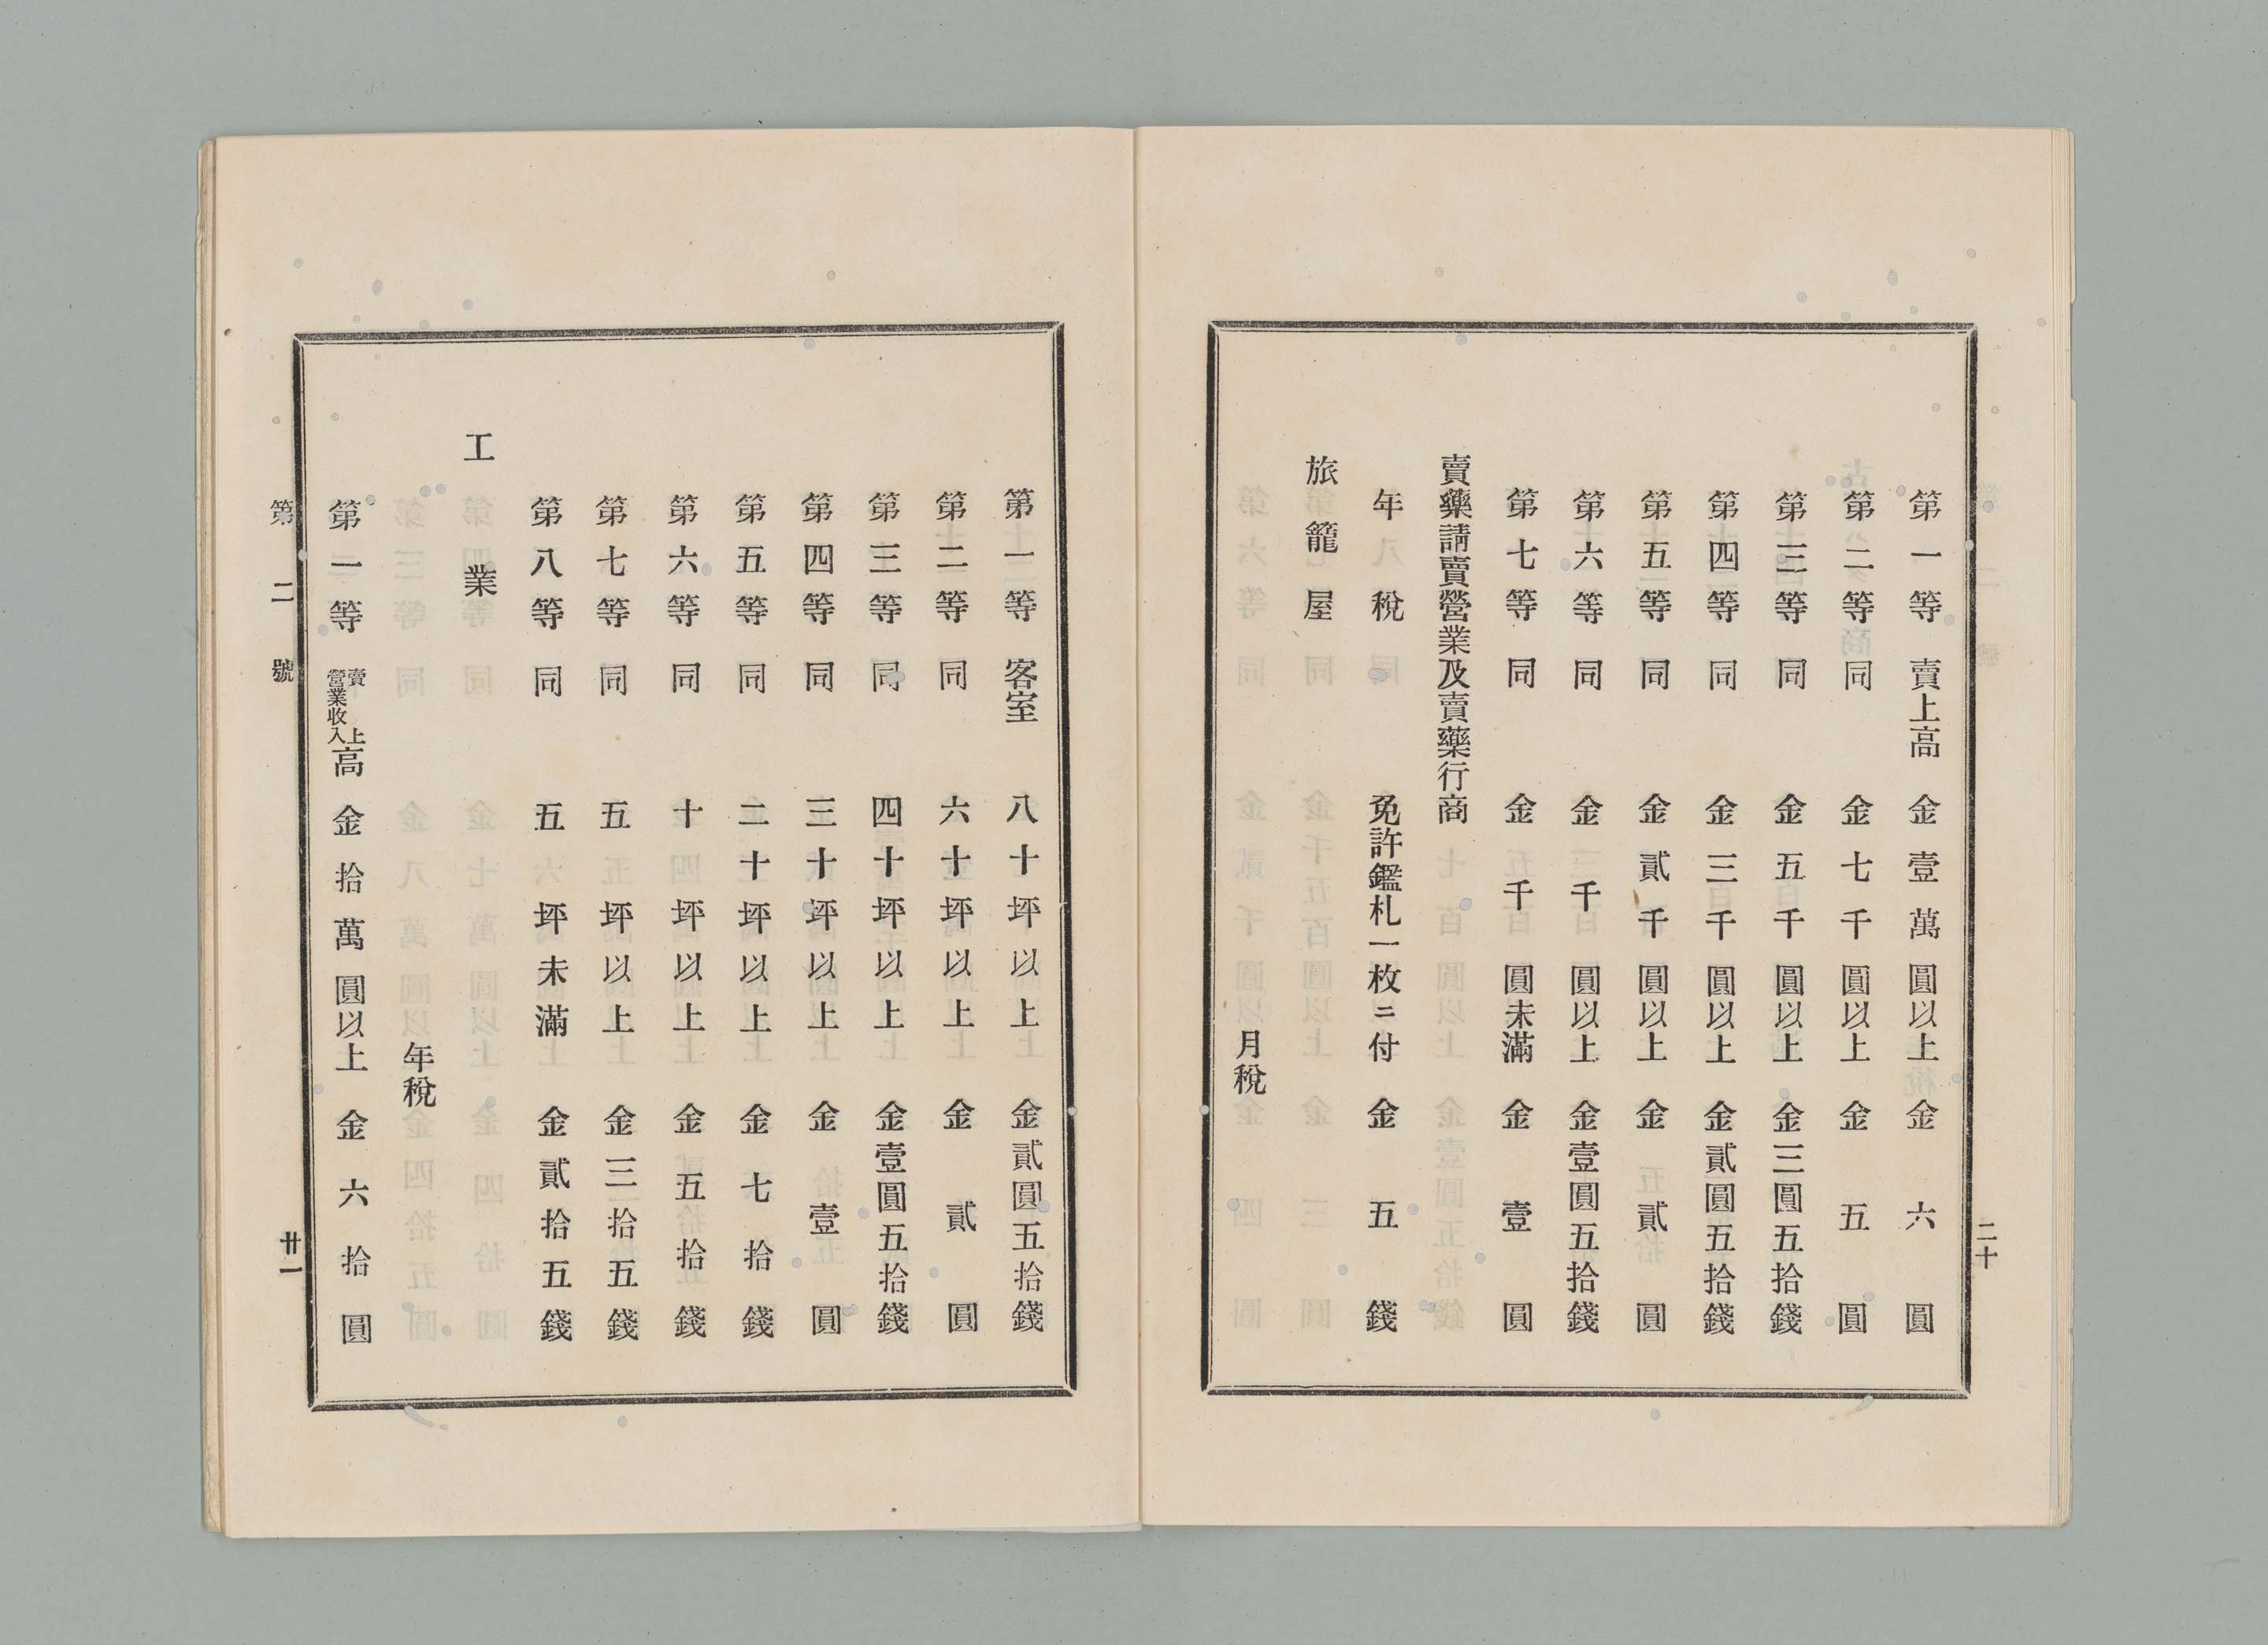 第一等 賣上高 金壹萬圓以上 金六圓
第二等 同 金七千圓以上 金五圓
第三等 同 金五千圓以上 金三圓五拾錢
第四等 同 金三千圓以上 金貳圓五拾錢
第五等 同 金貳千圓以上 金貳圓
第六等 同 金千圓以上 金壹圓五拾錢
第七等 同 金千圓未滿 金壹圓
賣藥請賣營業及賣藥行商
年稅 免許鑑札一枚ニ付 金五錢
旅籠屋
月稅
二十
第一等 客室 八十坪以上 金貳圓五拾錢
第二等 同 六十坪以上 金貳圓
第三等 同 四十坪以上 金壹圓五拾錢
第四等 同 三十坪以上 金壹圓
第五等 同 二十坪以上 金七拾錢
第六等 同 十坪以上 金五拾錢
第七等 同 五坪以上 金三拾五錢
第八等 同 五坪未滿 金貳拾五錢
工業
年稅
第一等 賣上營業收入高 金拾萬圓以上 金六拾圓
第二號
廿一